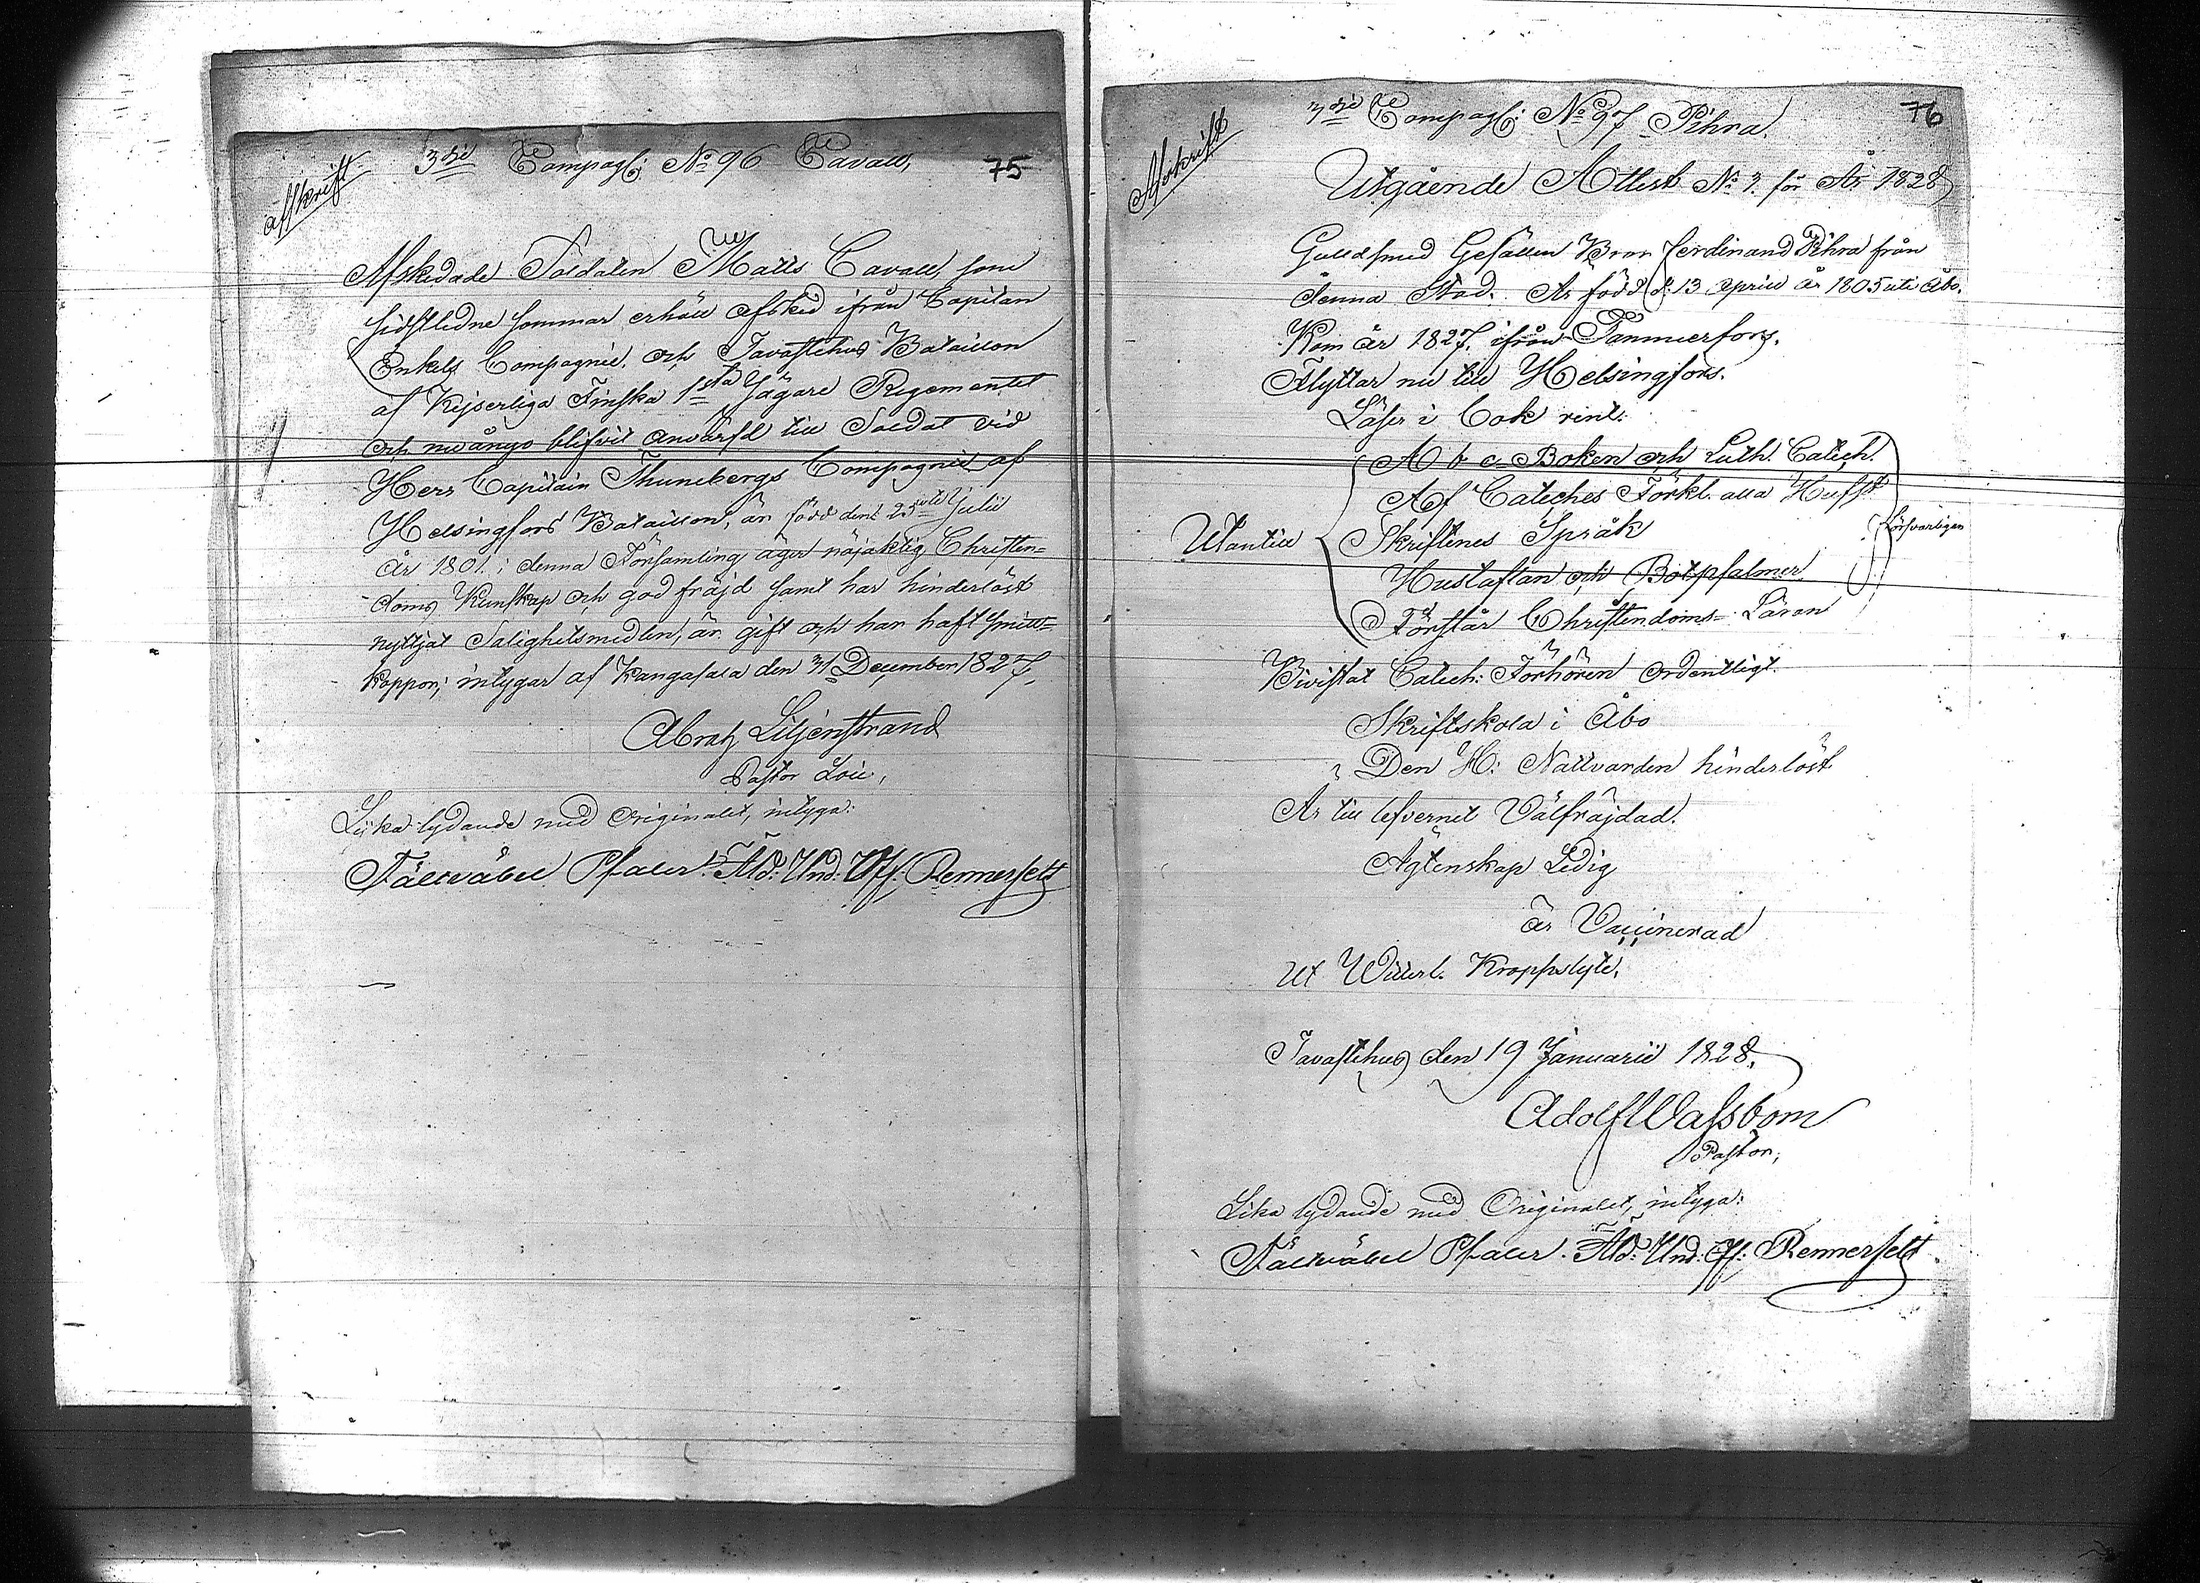 Afskrift
3dje Compagl: No 96 Cavall,
75
Afskedade Soldaten Matts Cavall, som
sidstledne sommar erhöll afsked ifrån Capitan
Enkels Compagnie, och Tavastehus Bataillon
af Kejserliga Finska 1sta Jägare Regementet
och nu ånyo blifvit anvärfd till Soldat vid
Herr Capitain Thunebergs Compagnie af
Helsingfors Bataillon, är född den 25 Julii
År 1801. i denna Församling äger nöjaktig Christen=
doms Kunskap och god fräjd samt har hinderlöst
nyttjat Salighetsmedlen, är gift och har haft smitt=
koppor; intygar af Kangasala den 31 December 1827,
Abrah Liljenstrand
Pastor Loci,
Lika lydande med Originalet, intyga:
Fältväbel Pfaler. Åld: Und: Off: Rennerfelt
Afskrift
3dje Compagl: No 97 Pihra.
76
Utgående Attest No 3. för År 1828
Guldsmed Gesällen Bror Ferdinand Pihra från
denna Stad. Är född d: 13 April år 1805 uti Åbo.
Kom år 1827. ifrån Tammerfors.
Flyttar nu till Helsingfors.
Läser i bok rent.
A b c Boken och Luth. Catech.
Af Cateches Förkl. alla Hufst
Utantill Skriftenes Språk
försvarligen
Hustaflan och Botpsalmer
Förstår Christendoms=Läran
Bivistat Catech: Förhören ordentligt.
Skriftskola i Åbo
Den H: Nattvarden hinderlöst
Är till lefvernet Välfräjdad.
Ägtenskap Ledig
är Vaccinerad
ut Vitterl. Kroppslyte.
Tavastehus den 19 Januarii 1828.
Adolf Wassbom
Pastor;
Lika lydande med Originalet, intyga:
Fältväbel Pfaler. Åld: Und: Off: Rennerfelt